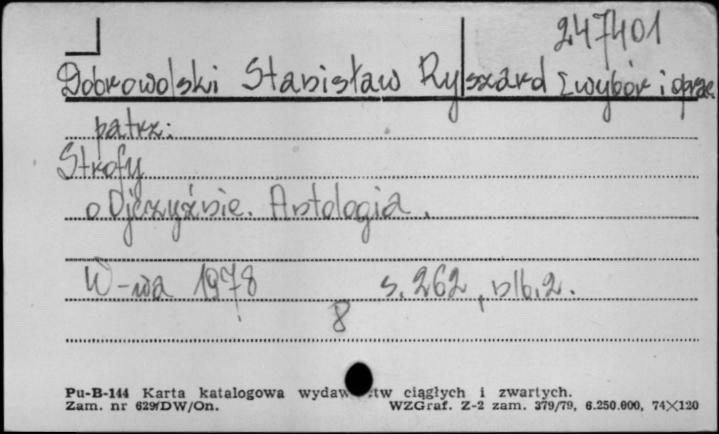 247401
Dobrowolski Stanisław Ryszard [wybór i oprac.
patrz:
Strofy
o Ojczyźnie. Antologia.
W-wa 1978 s. 262, nlb. 2.
8
Pu-B-144 Karta katalogowa wydaw tw ciągłych i zwartych.
Zam. nr 629/DW/On. WZGraf. Z-2 zam. 379/79, 6.250.000, 74×120